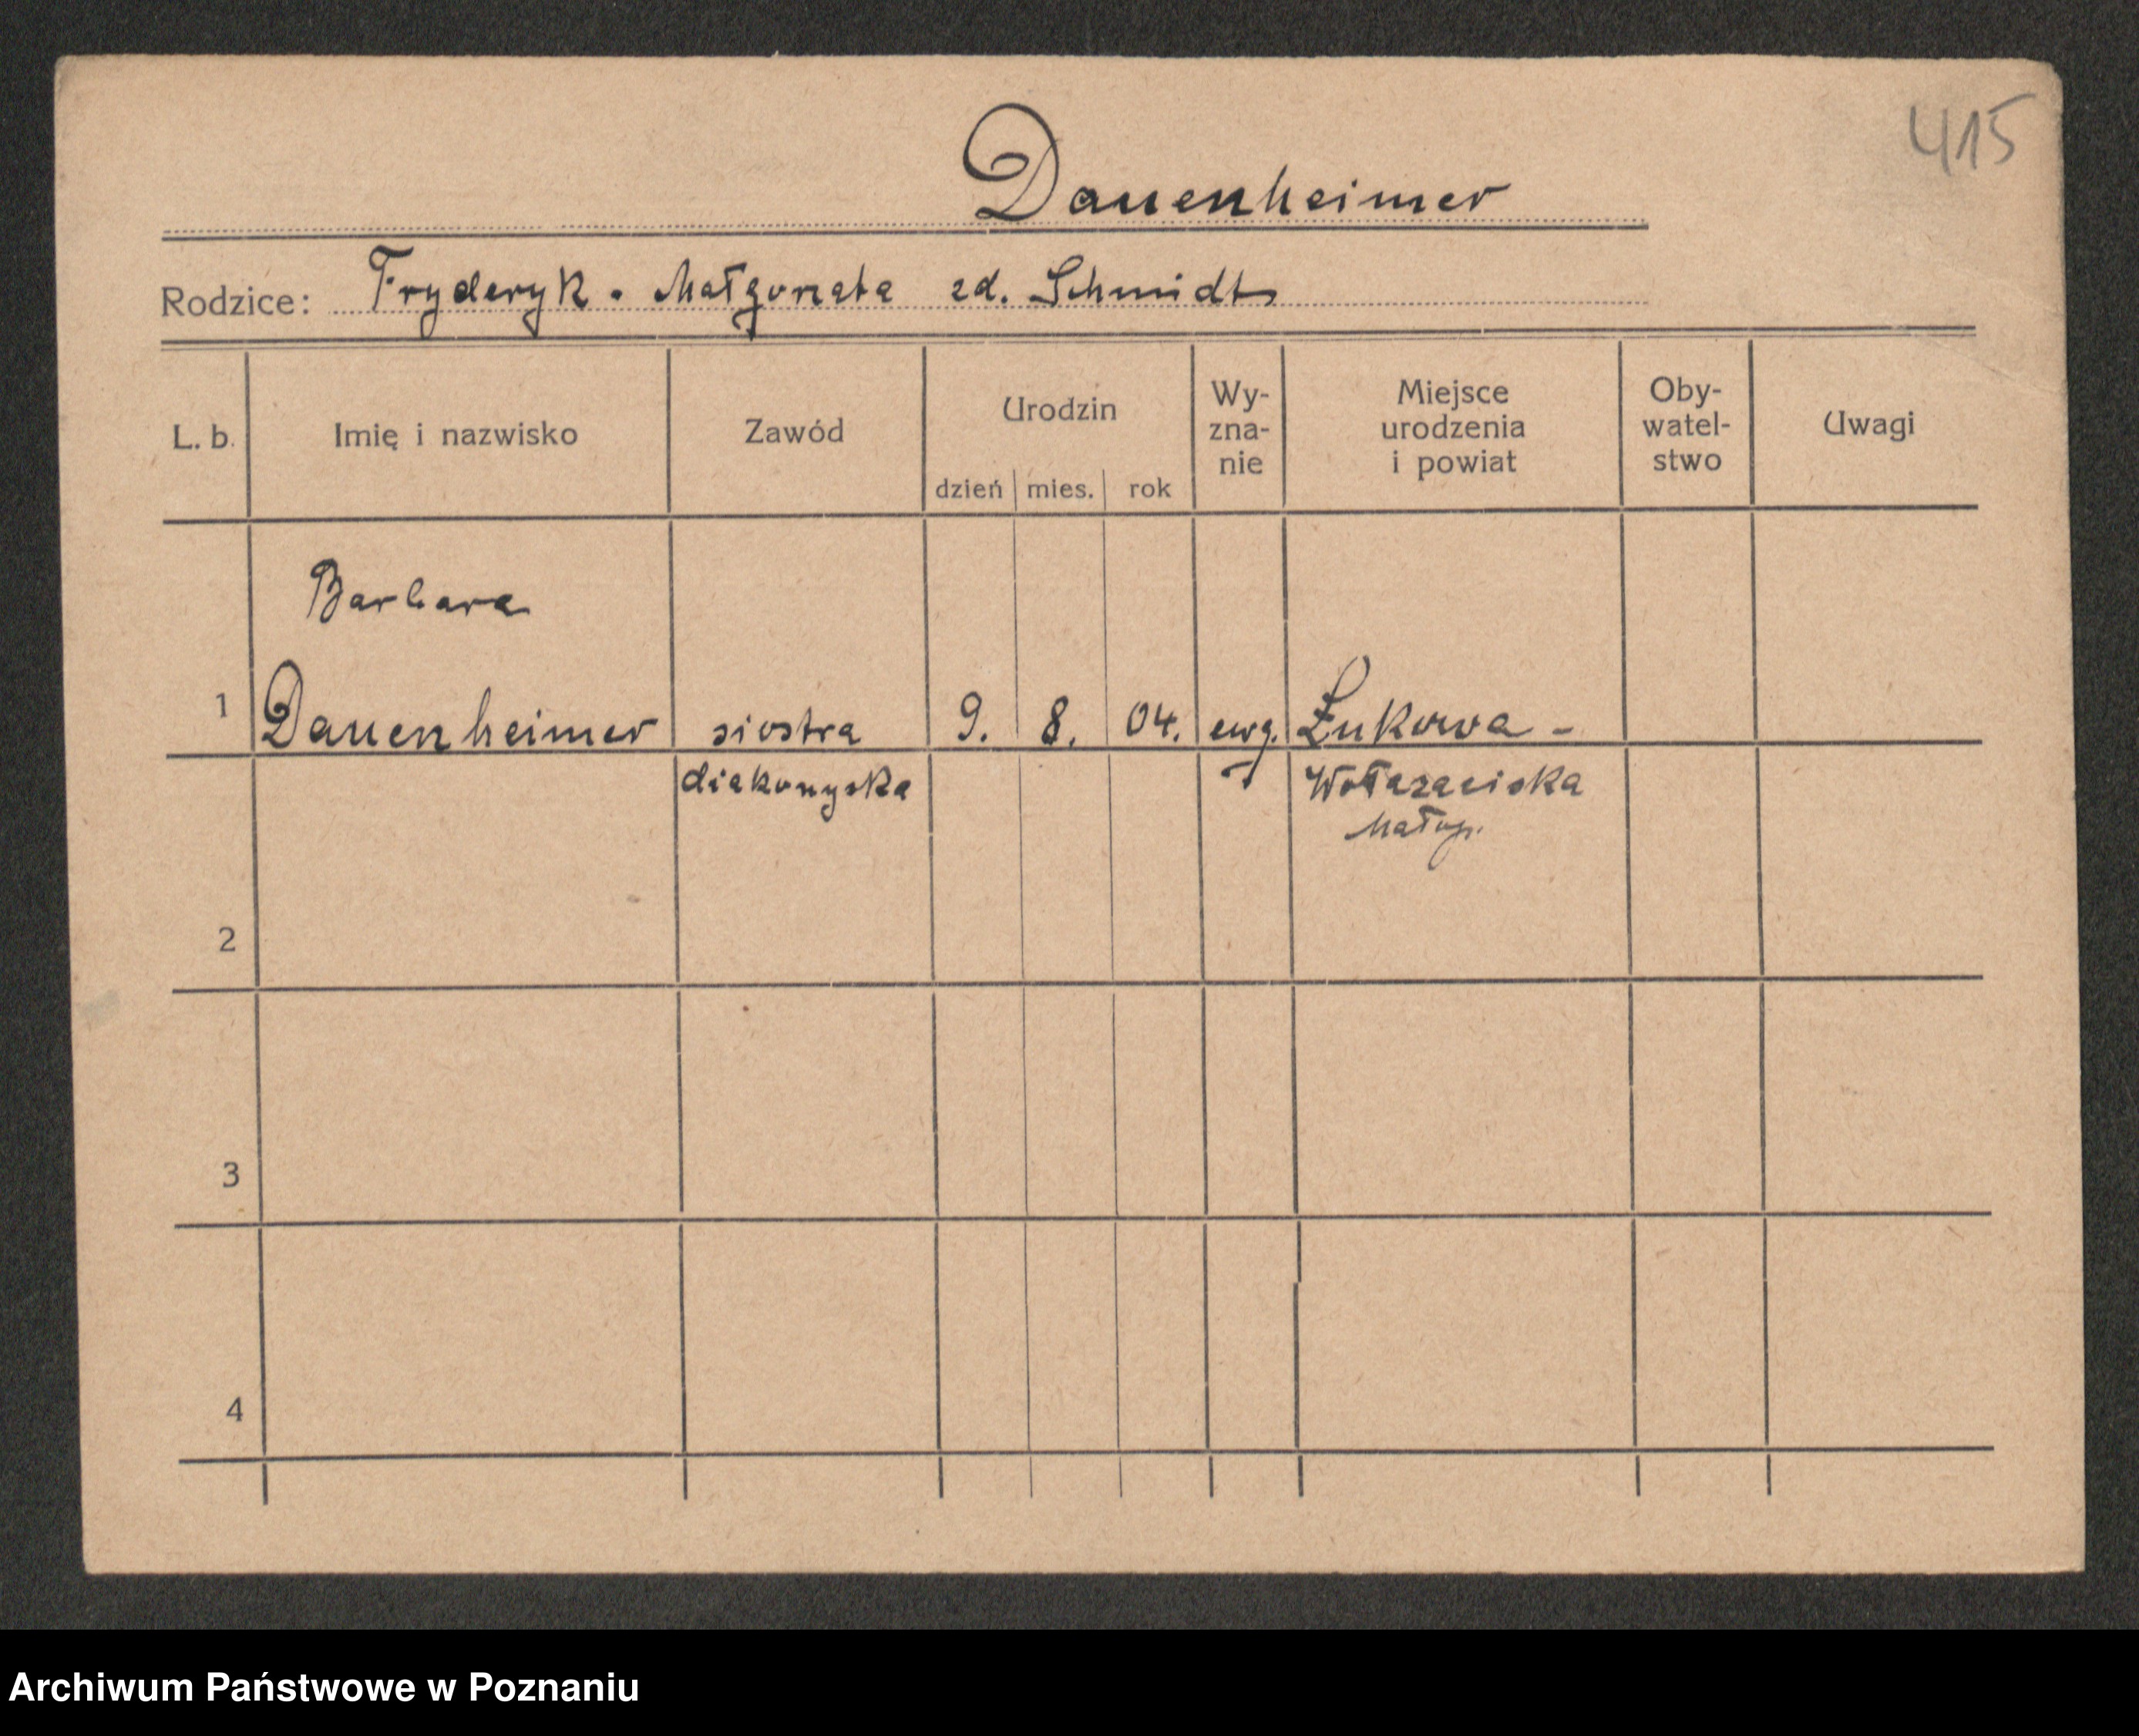 415
Dauenheimer
Rodzice: Fryderyk. Małgorzata zd. Schmidt
L. b. Imię i nazwisko Zawód Urodzin dzień mies. rok Wy-zna-nie Miejsce urodzenia i powiat Oby-watel-stwo Uwagi
Barbara
1 Dauenheimer siostra 9. 8. 04. ewg. Łukowa -
diakonyska
Małop.
2
3
4
Archiwum Państwowe w Poznaniu